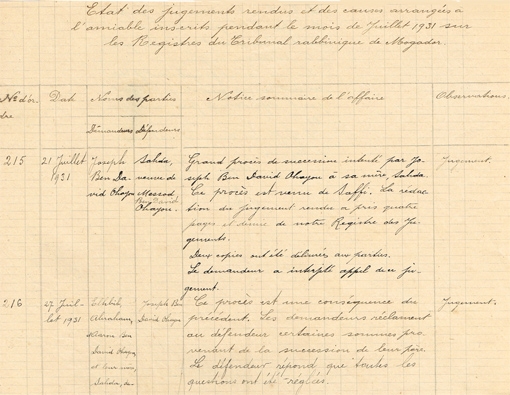 Etat des jugements rendus et des causes arrangées à
l'amiable inscrits pendant le mois de Juillet 1931 sur
les Registres du Tribunal rabbinique de Mogador.
Nº d'or-
dre
Date
Noms des parties
Demandeurs
Défendeurs
Notice sommaire de l'affaire
Observations
215
21 Juillet
1931
Joseph
Ben Da-
vid Ohayon
Salida,
veuve de
Messod
Ben David
Ohayon.
Grand procès de succession intenté par Jo-
seph Ben David Ohayon à sa mère, Salida.
Ce procès est venu de Saffi. La rédac-
tion du jugement rendu a pris quatre
pages et demie de notre Registre des Ju-
gements.
Deux copies ont été délivrées aux parties.
Le demandeur a interjeté appel du ju-
gement.
Jugement.
216
27 Juil-
let 1931
Abraham,
Aaron Ben
David Ohayon
et leur mère,
Salida,
Joseph Ben
David Ohayon
Ce procès est une conséquence du
précédent. Les demandeurs réclament
au défendeur certaines sommes pro-
venant de la succession de leur père.
Le défendeur répond que toutes les
questions ont été réglées.
Jugement.